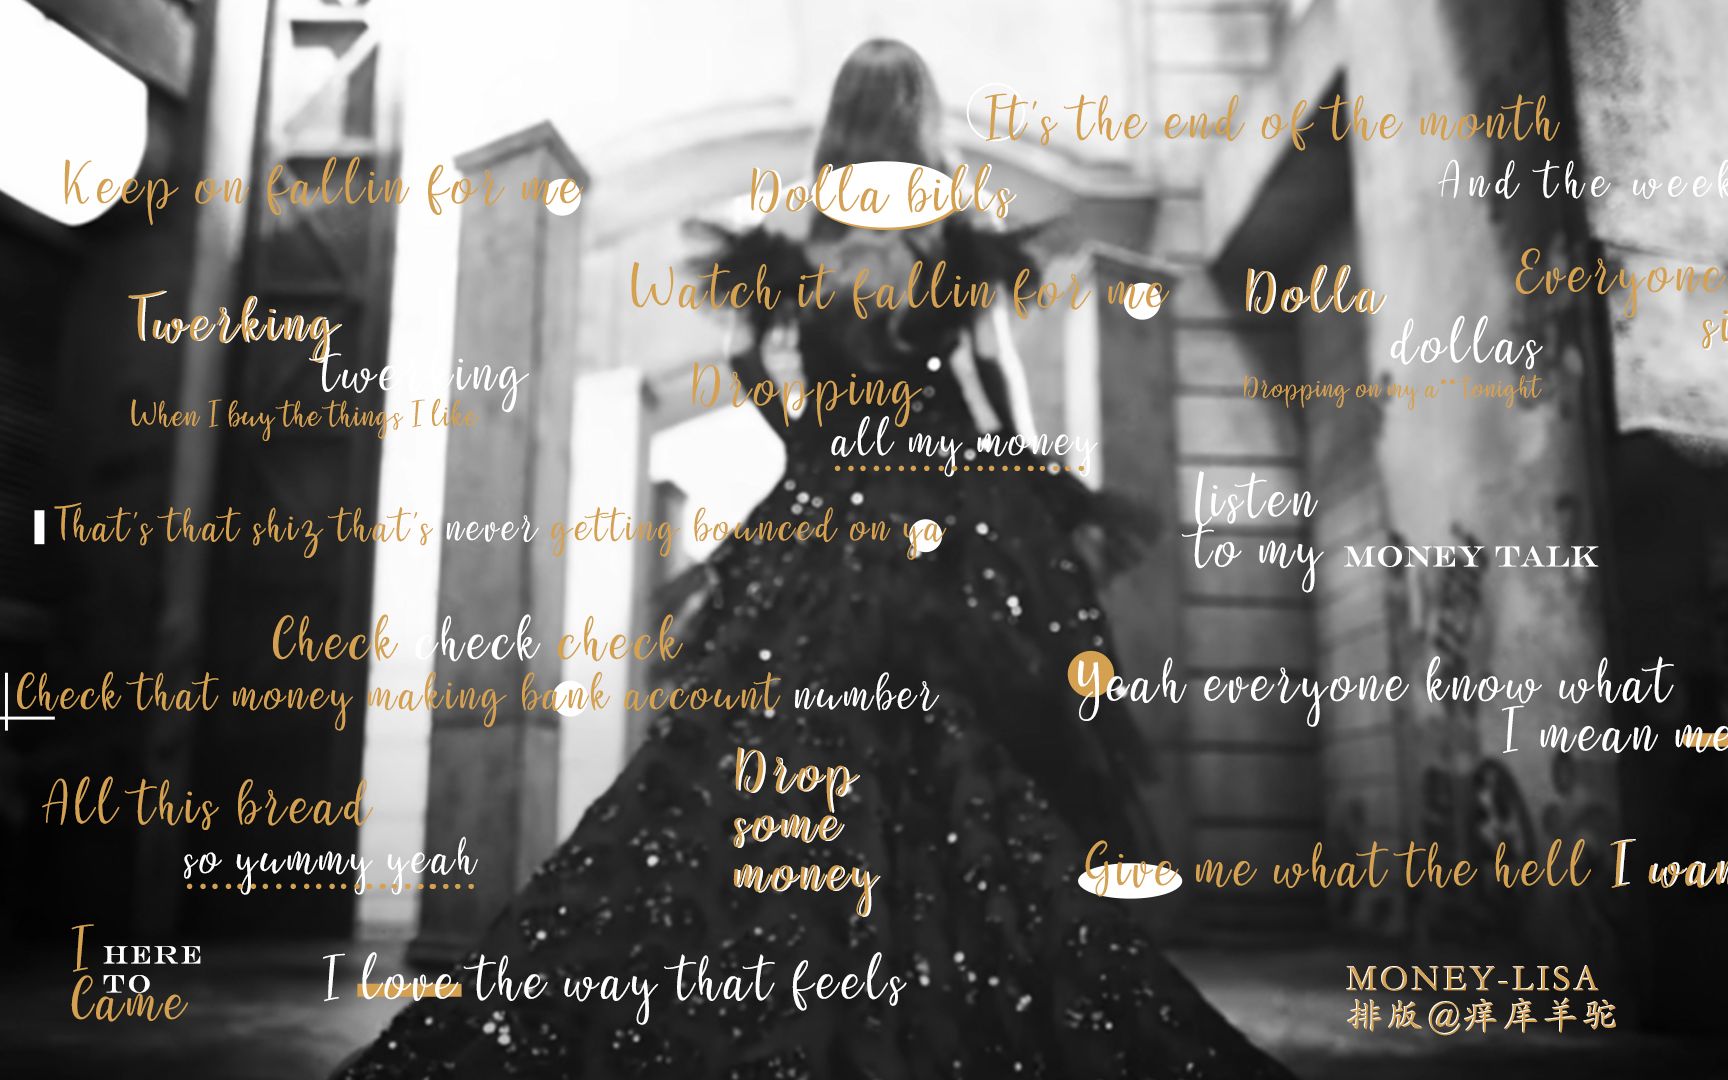 It's the end of the month
And the week
Keep on fallin for me
Dolla bills
Watch it fallin for me
Dolla
dollas
Dropping on my a** tonight
Everyone
si
Twerking
twerking
When I buy the things I like
Dropping
all my money
That's that shiz that's never getting bounced on ya
listen
to my MONEY TALK
Check check check
Check that money making bank account number
Yeah everyone know what
I mean me
All this bread
so yummy yeah
Drop
some
money
Give me what the hell I wan
I HERE
TO
Came
I love the way that feels
MONEY-LISA
排版@痒庠羊驼